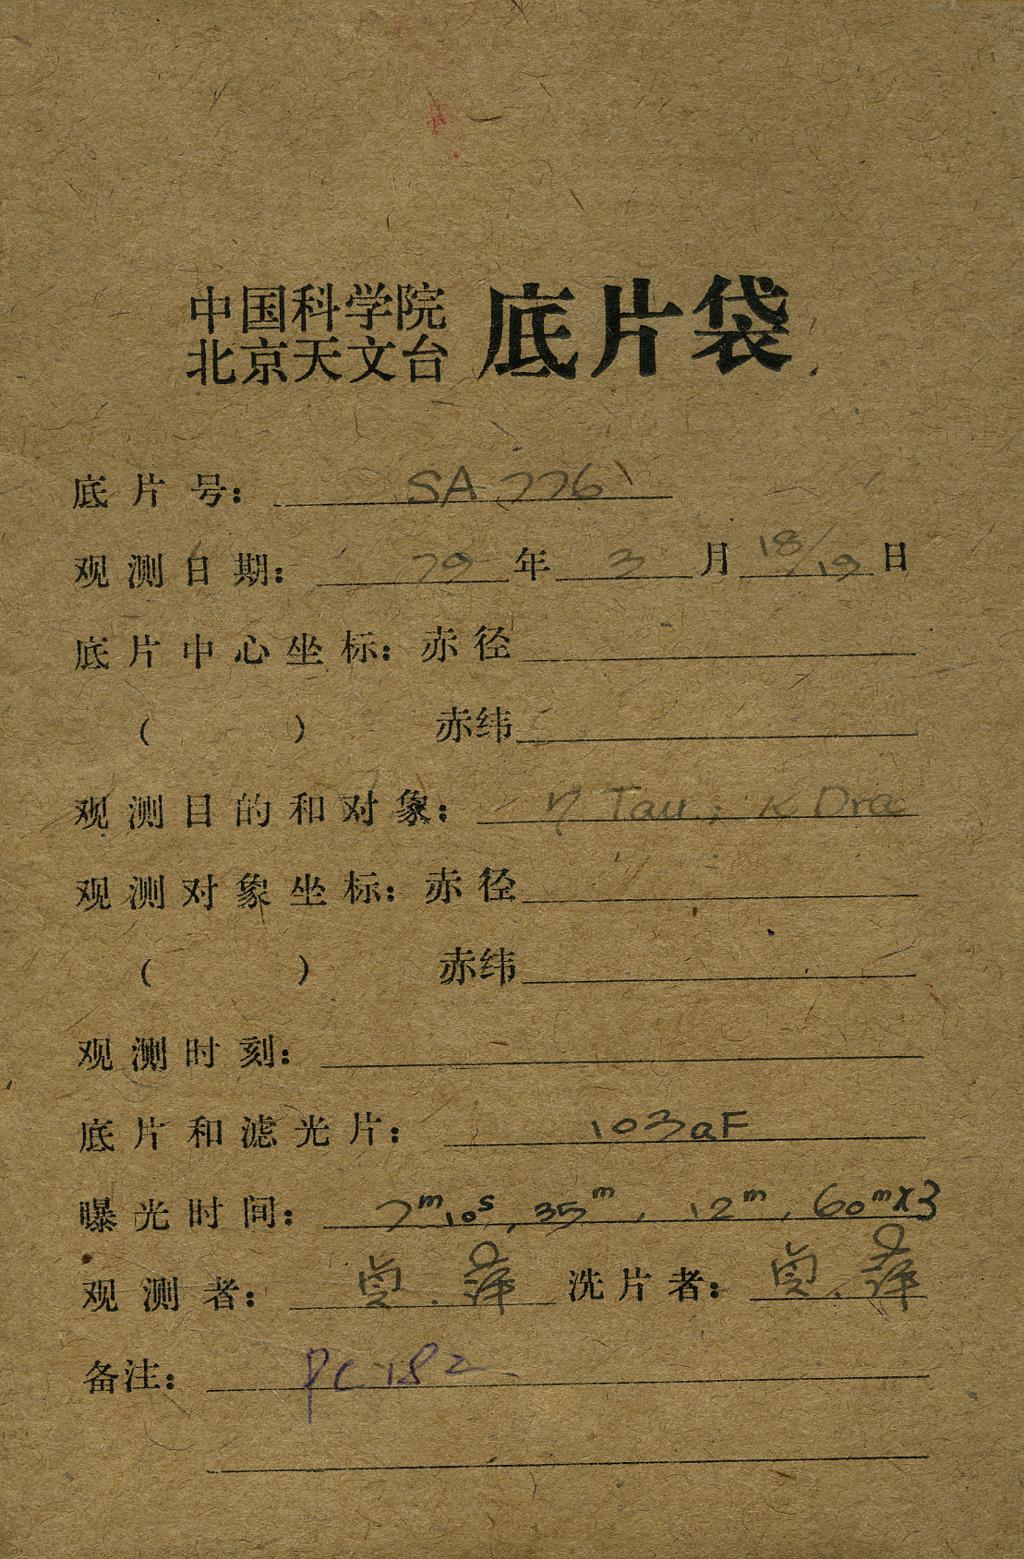 中国科学院
北京天文台
底片袋
底片号: SA 776
观测日期: 79 年 3 月 18/19 日
底片中心坐标: 赤径
( ) 赤纬
观测目的和对象: η Tau; κ Dra
观测对象坐标: 赤径
( ) 赤纬
观测时刻:
底片和滤光片: 103aF
曝光时间: 7m10s, 35m, 12m, 60m×3
观测者: 贞. 萍 洗片者: 贞. 萍
备注: PC 182